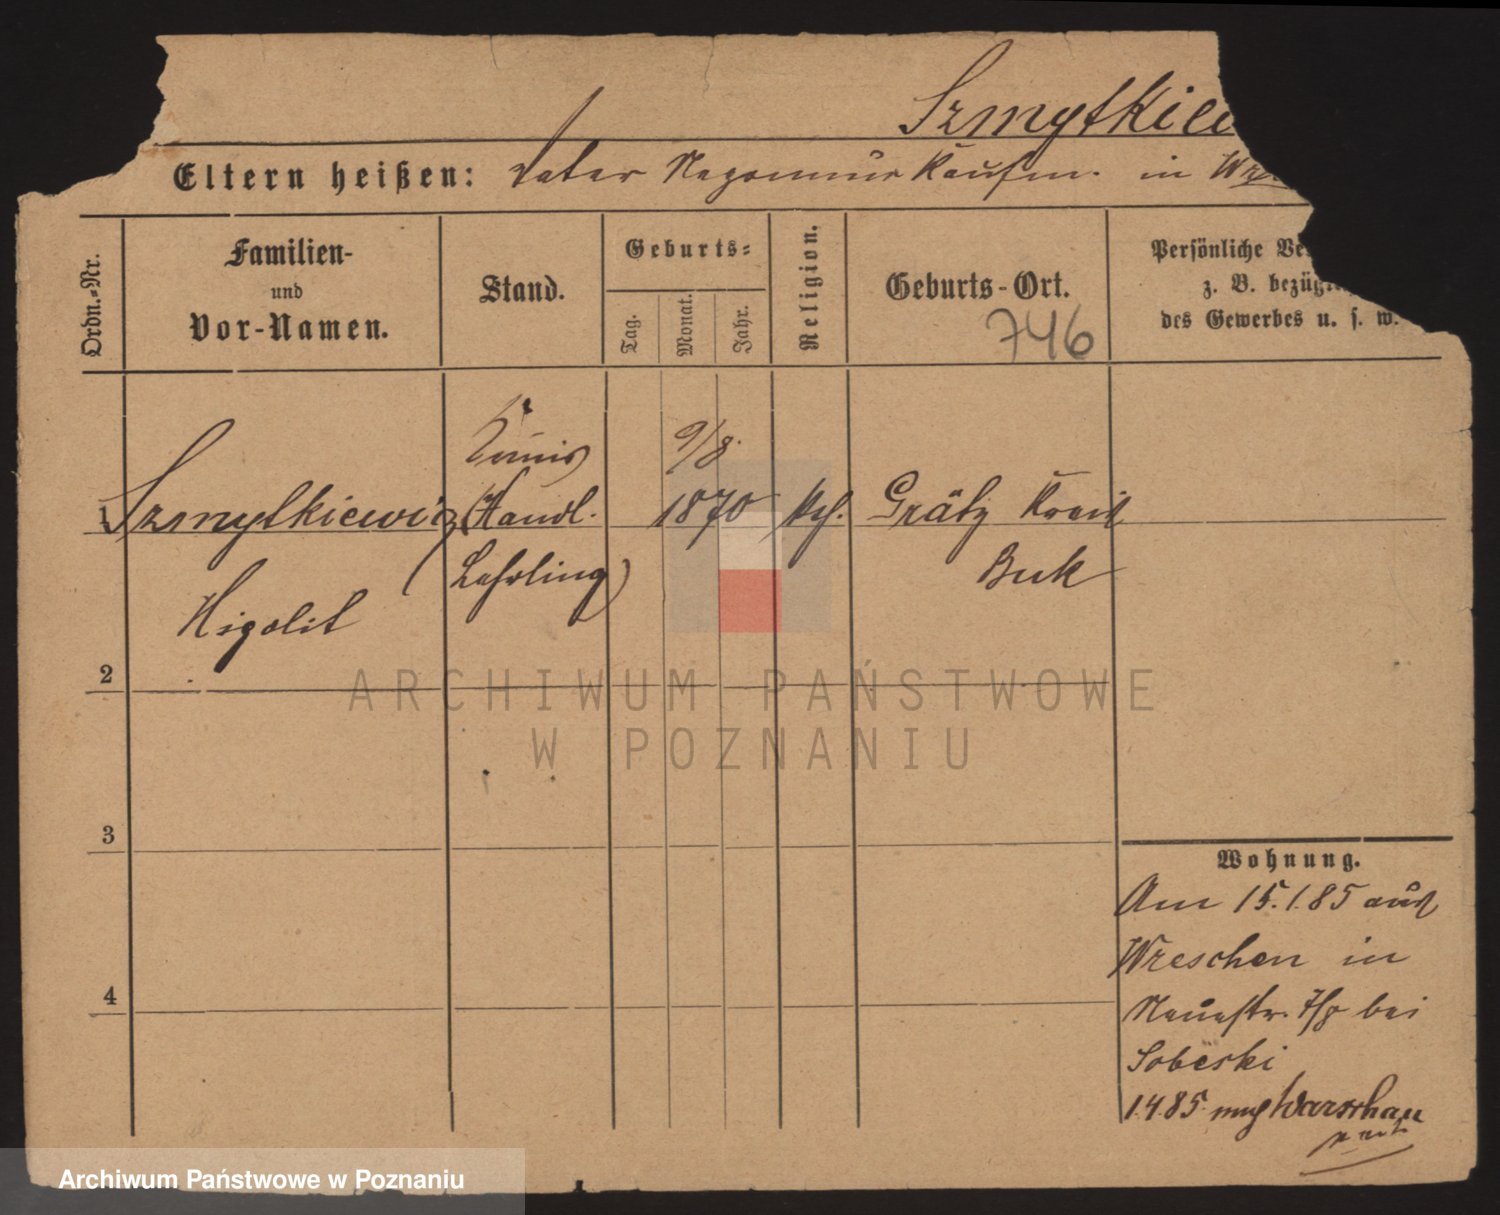 Szmytkiew
Eltern heißen: Vater Nepomuk Kaufm. in Wr
Ordn.-Nr.
Familien-
und
Vor-Namen.
Stand.
Geburts-
Tag.
Monat.
Jahr.
Religion.
Geburts-Ort.
746
Persönliche Ve
z. B. bezügl
des Gewerbes u. s. w.
9/8.
1 Szmytkiewicz (Handl. 1870 kth. Grätz Kreis
Lehrling) Buk
Hipolit
2
3
4
ARCHIWUM PAŃSTWOWE
W POZNANIU
Wohnung.
Am 15.1.85 aus
Wreschen in
Neuestr. 7/8 bei
Sobeski
1.4.85 nach Warschau
Archiwum Państwowe w Poznaniu